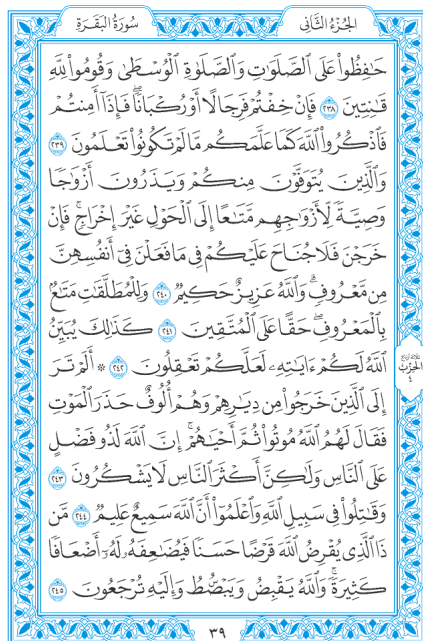 الجُزءُ الثَّانِي
سُورَةُ البَقَرَةِ
حَٰفِظُوا۟ عَلَى ٱلصَّلَوَٰتِ وَٱلصَّلَوٰةِ ٱلْوُسْطَىٰ وَقُومُوا۟ لِلَّهِ
قَٰنِتِينَ ٢٣٨ فَإِنْ خِفْتُمْ فَرِجَالًا أَوْ رُكْبَانًا ۖ فَإِذَآ أَمِنتُمْ
فَٱذْكُرُوا۟ ٱللَّهَ كَمَا عَلَّمَكُم مَّا لَمْ تَكُونُوا۟ تَعْلَمُونَ ٢٣٩
وَٱلَّذِينَ يُتَوَفَّوْنَ مِنكُمْ وَيَذَرُونَ أَزْوَٰجًا
وَصِيَّةً لِّأَزْوَٰجِهِم مَّتَٰعًا إِلَى ٱلْحَوْلِ غَيْرَ إِخْرَاجٍ ۚ فَإِنْ
خَرَجْنَ فَلَا جُنَاحَ عَلَيْكُمْ فِى مَا فَعَلْنَ فِىٓ أَنفُسِهِنَّ
مِن مَّعْرُوفٍ ۗ وَٱللَّهُ عَزِيزٌ حَكِيمٌ ٢٤٠ وَلِلْمُطَلَّقَٰتِ مَتَٰعٌۢ
بِٱلْمَعْرُوفِ ۖ حَقًّا عَلَى ٱلْمُتَّقِينَ ٢٤١ كَذَٰلِكَ يُبَيِّنُ
ٱللَّهُ لَكُمْ ءَايَٰتِهِۦ لَعَلَّكُمْ تَعْقِلُونَ ٢٤٢ ۞ أَلَمْ تَرَ
إِلَى ٱلَّذِينَ خَرَجُوا۟ مِن دِيَٰرِهِمْ وَهُمْ أُلُوفٌ حَذَرَ ٱلْمَوْتِ
فَقَالَ لَهُمُ ٱللَّهُ مُوتُوا۟ ثُمَّ أَحْيَٰهُمْ ۚ إِنَّ ٱللَّهَ لَذُو فَضْلٍ
عَلَى ٱلنَّاسِ وَلَٰكِنَّ أَكْثَرَ ٱلنَّاسِ لَا يَشْكُرُونَ ٢٤٣
وَقَٰتِلُوا۟ فِى سَبِيلِ ٱللَّهِ وَٱعْلَمُوٓا۟ أَنَّ ٱللَّهَ سَمِيعٌ عَلِيمٌ ٢٤٤ مَّن
ذَا ٱلَّذِى يُقْرِضُ ٱللَّهَ قَرْضًا حَسَنًا فَيُضَٰعِفَهُۥ لَهُۥٓ أَضْعَافًا
كَثِيرَةً ۚ وَٱللَّهُ يَقْبِضُ وَيَبْصُۜطُ وَإِلَيْهِ تُرْجَعُونَ ٢٤٥
ثلاثة أرباع
الحزب
٤
٣٩